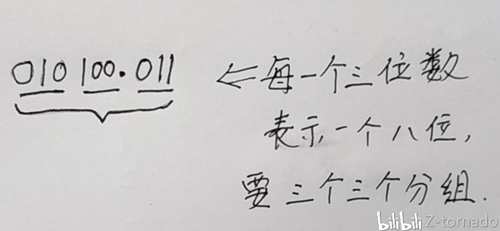 010 100.011
⇐每一个三位数
表示一个八位,
要三个三个分组.
bilibili Z-tornado